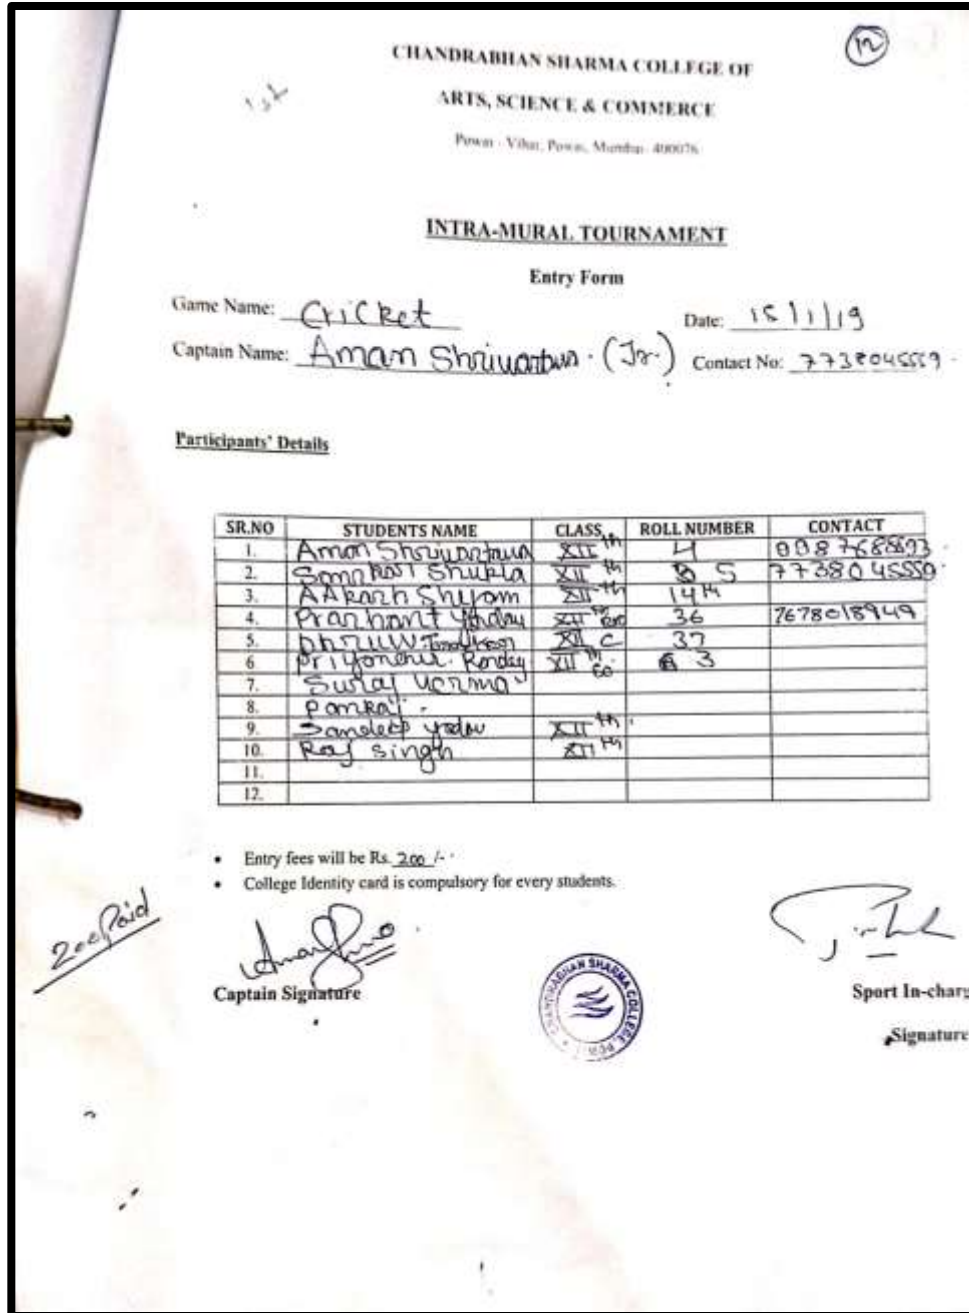 12
1st
CHANDRABHAN SHARMA COLLEGE OF
ARTS, SCIENCE & COMMERCE
Powai - Vihar, Powai, Mumbai- 400076
INTRA-MURAL TOURNAMENT
Entry Form
Game Name: Cricket Date: 15/1/19
Captain Name: Aman (Jr.) Contact No: 7738045559
Participants' Details
SR.NO STUDENTS NAME CLASS ROLL NUMBER CONTACT
1. Aman XIIth 4
2. Shukla XIIth 5
3. AAkash Shyam XIIth 14
4. Prashant Yadav XIIth 36 7678018949
5. Dhruw XII C 37
6 XIIth 3
7. Suraj Verma
8. Pankaj
9. Sandeep yadav XIIth
10. Raj singh XIIth
11.
12.
• Entry fees will be Rs. 200 /-
• College Identity card is compulsory for every students.
200 Paid
Captain Signature
CHANDRABHAN SHARMA COLLEGE,
Sport In-charg
Signature